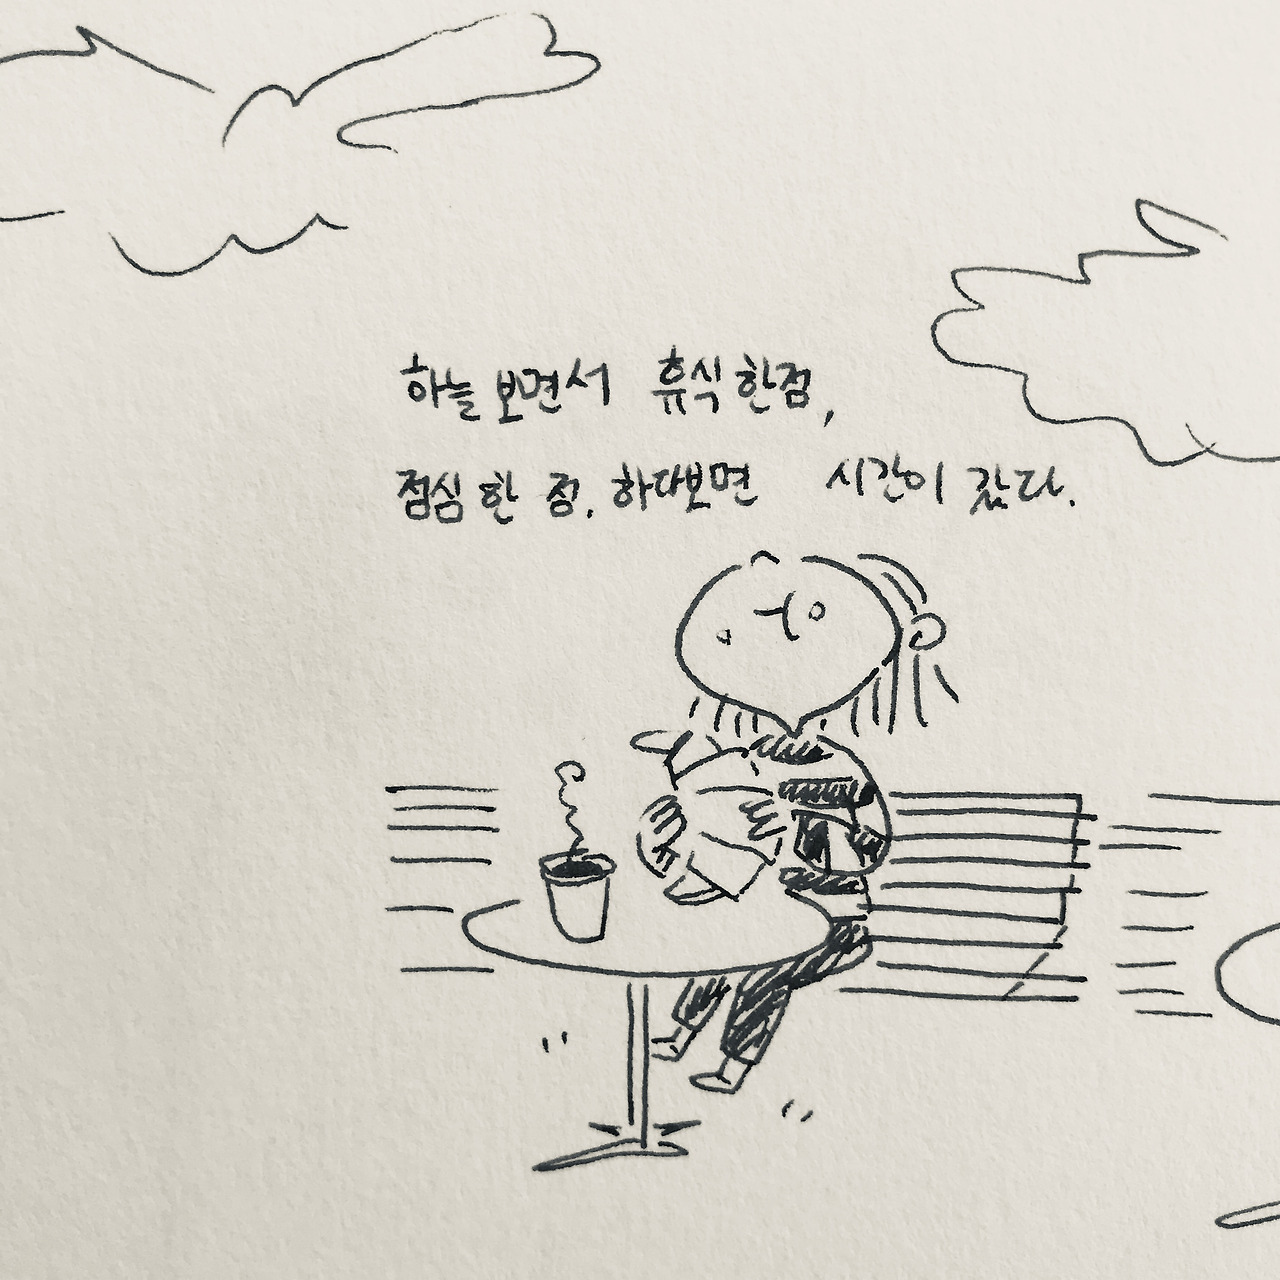 하늘 보면서 휴식 한점,
점심 한 점. 하다보면 시간이 갔다.